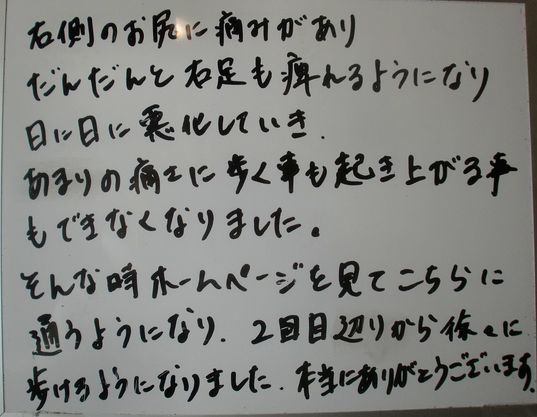 右側のお尻に痛みがあり
だんだんと右足も痺れるようになり
日に日に悪化していき.
あまりの痛さに歩く事も起き上がる事
もできなくなりました。
そんな時ホームページを見てこちらに
通うようになり. 2回目辺りから徐々に
歩けるようになりました. 本当にありがとうございます.